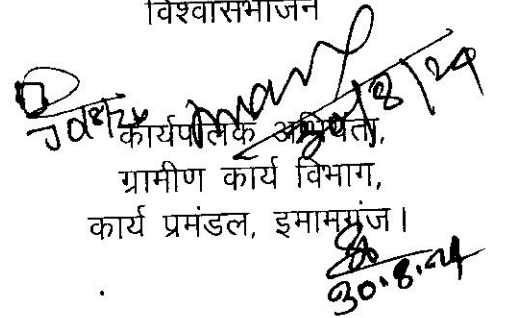 विश्वासभाजन
30/8/24
कार्यपालक अभियंता,
ग्रामीण कार्य विभाग,
कार्य प्रमंडल, इमामगंज।
30.8.24